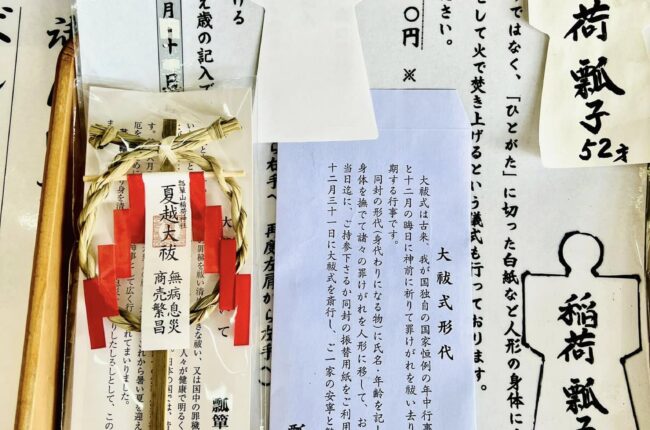 ではなく、「ひとがた」に切った白紙など人形の身体に
して火で焚き上げるという儀式も行っております。
ださい。
〇円 ※
え歳の記入で
ける
ら右手へ 再度左肩から左手へ)
荷 瓢子
52才
稲荷 瓢子
大祓式形代
大祓式は古来、我が国独自の国家恒例の年中行事
と十二月の晦日に神前に祈りて罪けがれを祓い去り
期する行事です。
同封の形代(身代わりになる物)に氏名・年齢を記
身体を撫でて諸々の罪けがれを人形に移して、お
当日迄に、ご持参下さるか同封の振替用紙をご利用
十二月三十一日に大祓式を斎行し、ご一家の安寧と
瓢箪山稲荷神社
夏越大祓
無病息災
商売繁昌
瓢箪